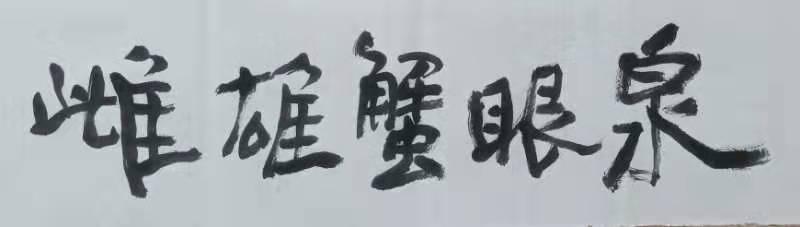 雌雄蟹眼泉